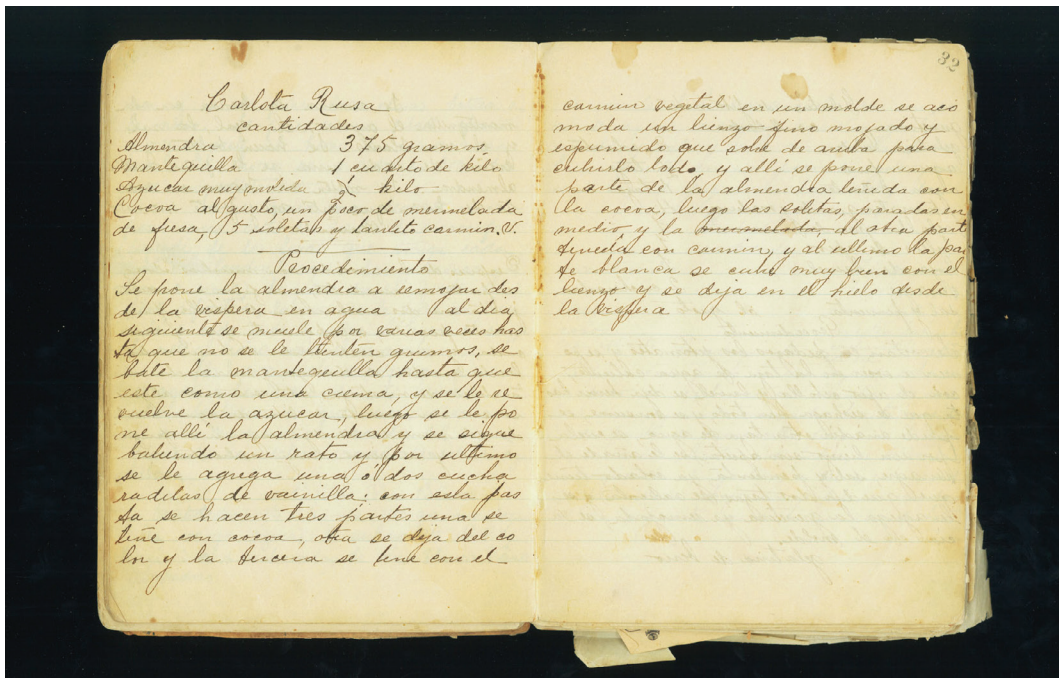 Carlota Rusa
cantidades
Almendra 375 gramos
Mantequilla 1 cuarto de kilo
Azucar muy molida 1/2 kilo
Cocoa al gusto, un poco de mermelada
de fresa, 5 soletas y tantito carmin. V.
Procedimiento
Se pone la almendra a remojar des
de la vispera en agua al dia
siguiente se muele por varias veces has
ta que no se le tienten grumos, se
bate la mantequilla hasta que
este como una crema, y se le re
vuelve la azucar, luego se le po
ne allí la almendra y se sigue
batiendo un rato y por ultimo
se le agrega una ó dos cucha
raditas de vainilla: con esta pas
ta se hacen tres partes una se
tiñe con cocoa, otra se deja del co
lor y la tercera se tiñe con el
32
carmin vegetal en un molde se aco
moda un lienzo fino mojado y
esprimido que sobre de arriba para
cubrirlo todo, y allí se pone una
parte de la almendra teñida con
la cocoa, luego las soletas, paradas en
medio, y la mermelada, al otra part
teñida con carmin, y al ultimo la par
te blanca se cubre muy bien con el
lienzo y se deja en el hielo desde
la vispera